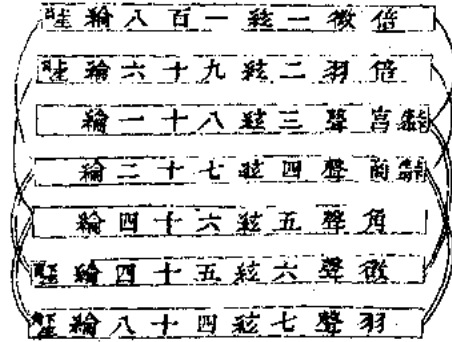 倍徵一絃一百八綸
倍羽二絃九十六綸
宮聲三絃八十一綸
商聲四絃七十二綸
角聲五絃六十四綸
徵聲六絃五十四綸
羽聲七絃四十八綸